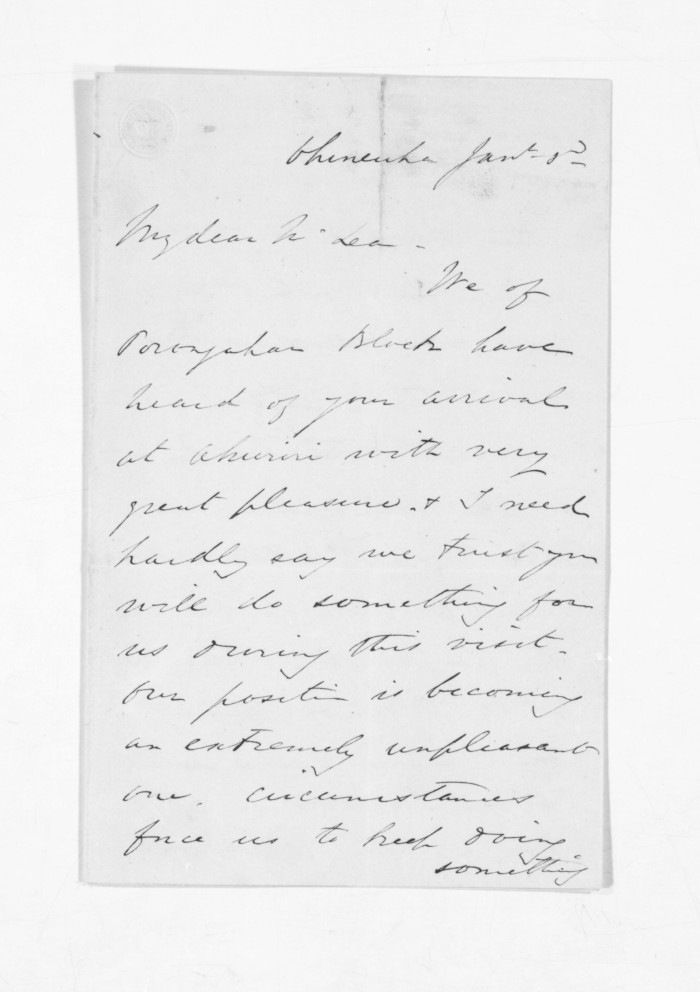 Oheneuka Jany 3rd
My dear Mc Lean -
We of
Porongahau Block have
heard of your arrival
at Ahuriri with very
great pleasure. & I need
hardly say we trust you
will do something for
us during this visit -
Our position is becoming
an extremely unpleasant
one. Circumstances
force us to keep doing
something